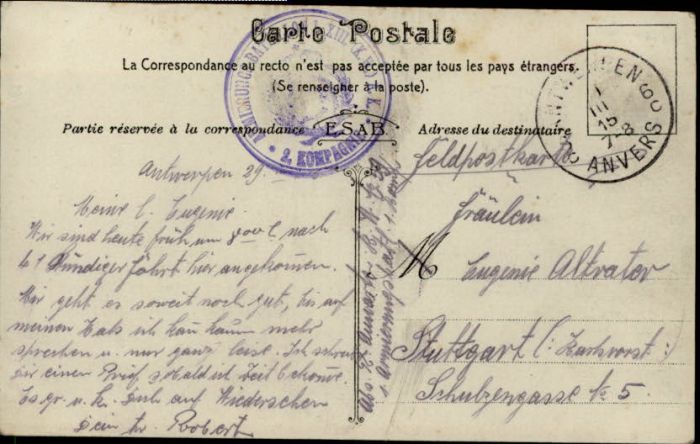 Carte Postale
La Correspondance au recto n'est pas acceptée par tous les pays étrangers.
(Se renseigner à la poste).
Partie réservée à la correspondance
E.S.A.B.
Adresse du destinataire
2. KOMPAGNIE
ANTWERPEN 6
1
III
15
7-8
ANVERS
Feldpostkarte
Antwerpen 29.
Meine l. Eugenie.
Wir sind heute früh um Uhr nach
61 stündiger Fahrt hier angekommen.
Mir geht es soweit noch gut, bis auf
meinen Hals ich kan kaum mehr
sprechen u. nur ganz leise. Ich schreibe
Dir einen Brief sobald ich Zeit bekomme.
Es gr. u. k. Dich auf Wiedersehen
Dein tr. Robert
Fräulein
Eugenie Altvater
Stuttgart
Schulzengasse No 5.